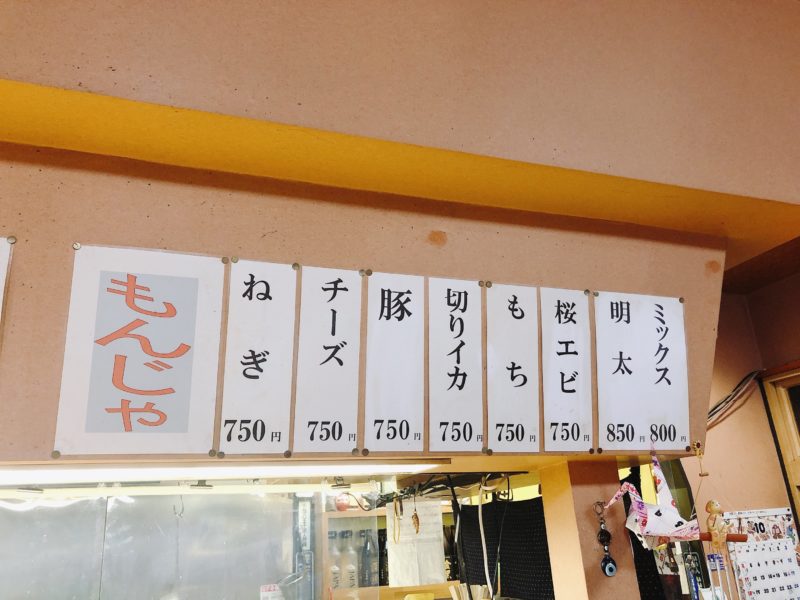 もんじゃ
ねぎ
750円
チーズ
750円
豚
750円
切りイカ
750円
もち
750円
桜エビ
750円
明太
850
ミックス
800円
10